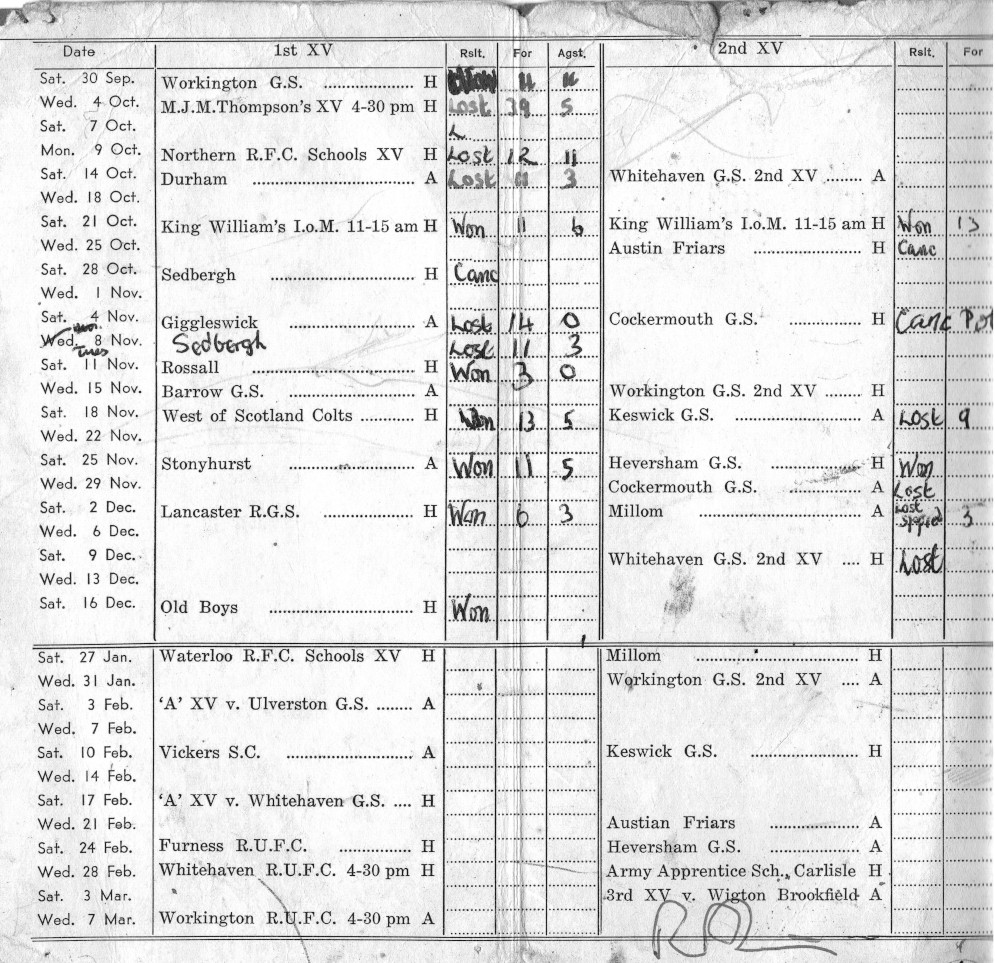 Date 1st XV Rslt. For Agst. 2nd XV Rslt. For
Sat. 30 Sep. Workington G.S. .................. H 11
Wed. 4 Oct. M.J.M.Thompson's XV 4-30 pm H Lost 39 5
Sat. 7 Oct. L
Mon. 9 Oct. Northern R.F.C. Schools XV H Lost 12 11
Sat. 14 Oct. Durham ................................ A Lost 11 3 Whitehaven G.S. 2nd XV ........ A
Wed. 18 Oct.
Sat. 21 Oct. King William's I.o.M. 11-15 am H Won 11 6 King William's I.o.M. 11-15 am H Won 13
Wed. 25 Oct. Austin Friars ..................... H Canc
Sat. 28 Oct. Sedbergh ............................ H Canc
Wed. 1 Nov.
Sat. 4 Nov. Giggleswick ......................... A Lost 14 0 Cockermouth G.S. .............. H Canc
Wed. 8 Nov. Tues Sedbergh Lost 11 3
Sat. 11 Nov. Rossall ................................ H Won 3 0
Wed. 15 Nov. Barrow G.S. ........................ A Workington G.S. 2nd XV ...... H
Sat. 18 Nov. West of Scotland Colts .......... H Won 13 5 Keswick G.S. ..................... A Lost 9
Wed. 22 Nov.
Sat. 25 Nov. Stonyhurst ......................... A Won 11 5 Heversham G.S. ................ H Won
Wed. 29 Nov. Cockermouth G.S. .............. A Lost
Sat. 2 Dec. Lancaster R.G.S. ................. H Won 6 3 Millom ............................ A Lost 3
Wed. 6 Dec.
Sat. 9 Dec. Whitehaven G.S. 2nd XV .... H Lost
Wed. 13 Dec.
Sat. 16 Dec. Old Boys ............................ H Won
Sat. 27 Jan. Waterloo R.F.C. Schools XV H Millom ................................ H
Wed. 31 Jan. Workington G.S. 2nd XV .... A
Sat. 3 Feb. 'A' XV v. Ulverston G.S. ........ A
Wed. 7 Feb.
Sat. 10 Feb. Vickers S.C. ........................ A Keswick G.S. ..................... H
Wed. 14 Feb.
Sat. 17 Feb. 'A' XV v. Whitehaven G.S. .... H
Wed. 21 Feb. Austian Friars .................. A
Sat. 24 Feb. Furness R.U.F.C. .............. H Heversham G.S. ................ A
Wed. 28 Feb. Whitehaven R.U.F.C. 4-30 pm H Army Apprentice Sch., Carlisle H
Sat. 3 Mar. 3rd XV v. Wigton Brookfield A
Wed. 7 Mar. Workington R.U.F.C. 4-30 pm A